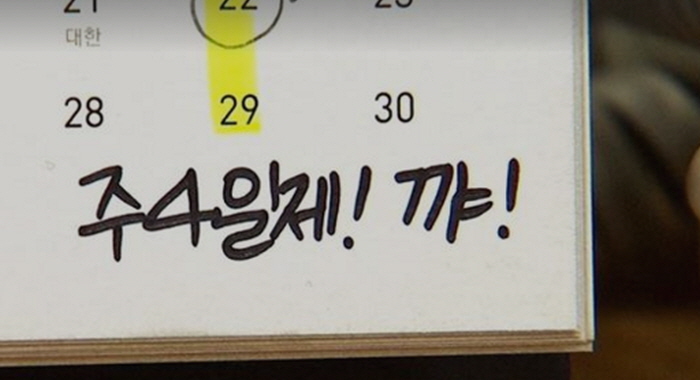 21 22 23
대한
28 29 30
주4일제! 꺄!